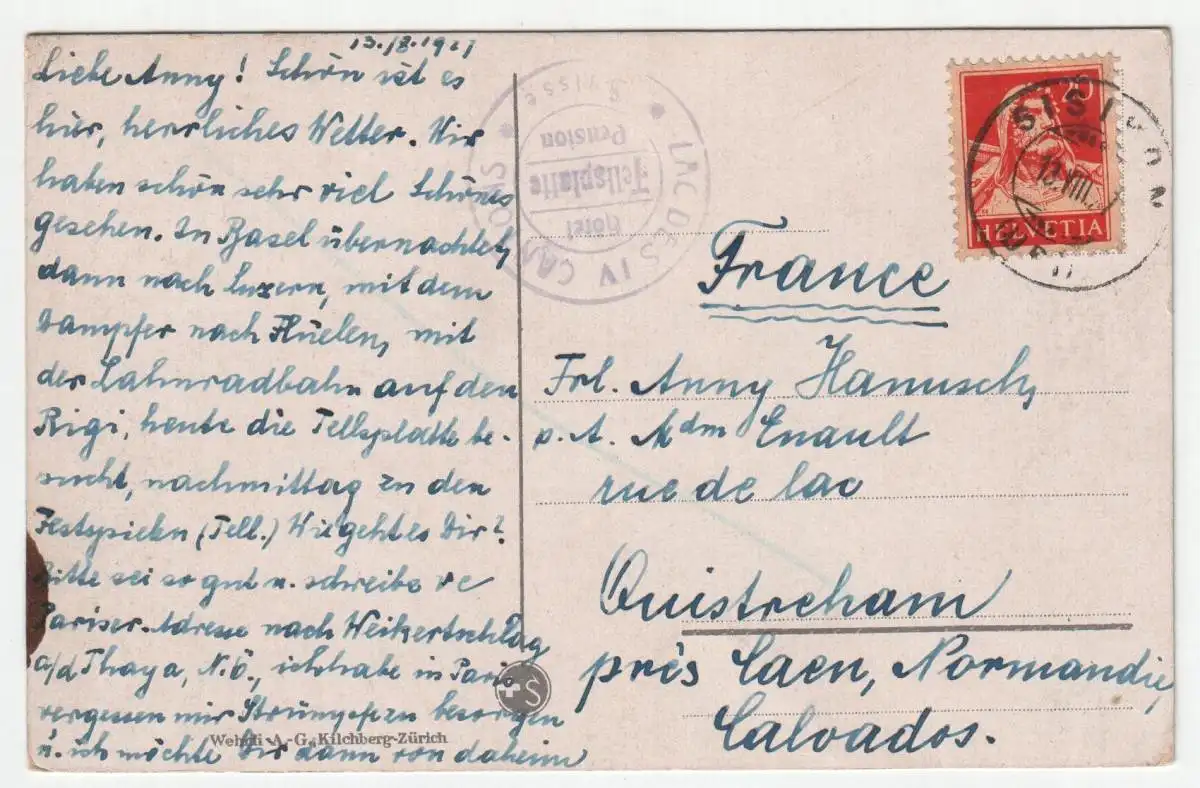 13./8.1927
Liebe Anny! Schön ist es
hier, herrliches Wetter. Wir
haben schon sehr viel Schönes
gesehen. In Basel übernachtet,
dann nach Luzern, mit dem
Dampfer nach Flüelen, mit
der Zahnradbahn auf den
Rigi, heute die Tellsplatte be-
sucht, nachmittag zu den
Festspielen (Tell.) Wie geht es Dir?
Bitte sei so gut u. schreibe
Pariser-Adresse nach Weikertschlag
a/d Thaya, N.Ö., ich habe in Paris
vergessen mir Strümpfe zu besorgen
u. ich möchte Dir dann von daheim
Wehrli A.-G., Kilchberg-Zürich
LAC DES IV CANTONS
Suisse
Hôtel
Tellsplatte
Pension
20
HELVETIA
SISIKON
13.VIII.
France
Frl. Anny Hanusch,
p. A. Mdm Enault
rue de lac
Ouistreham
près Caen, Normandie,
Calvados.
S